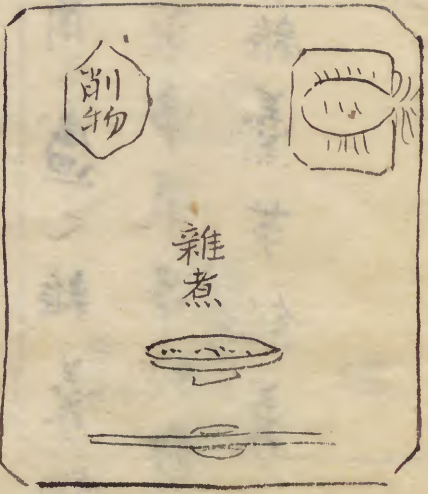 削物
雜煮